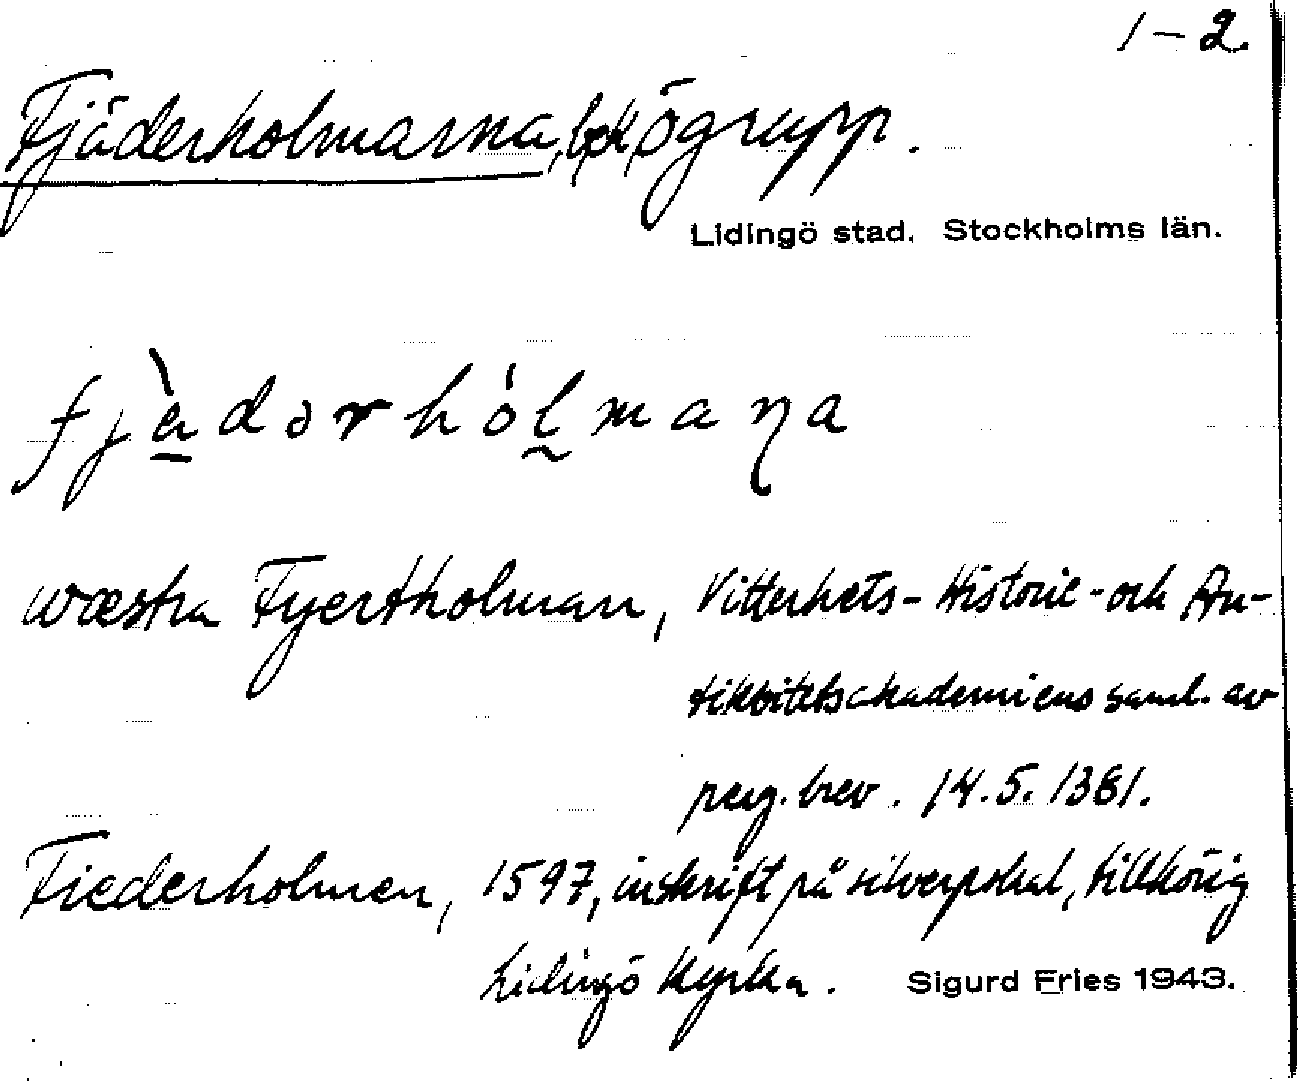 1-2.
Fjäderholmarna, ögrupp.
Lidingö stad. Stockholms län.
fjàdərhólmaṇa
wæstra Fyertholman, Vitterhets- Historie- och An-
tikvitetsakademiens saml. av
perg. brev. 14.5.1381.
Fiederholmen, 1597, inskrift på silverpokal, tillhörig
Lidingö Kyrka. Sigurd Fries 1943.